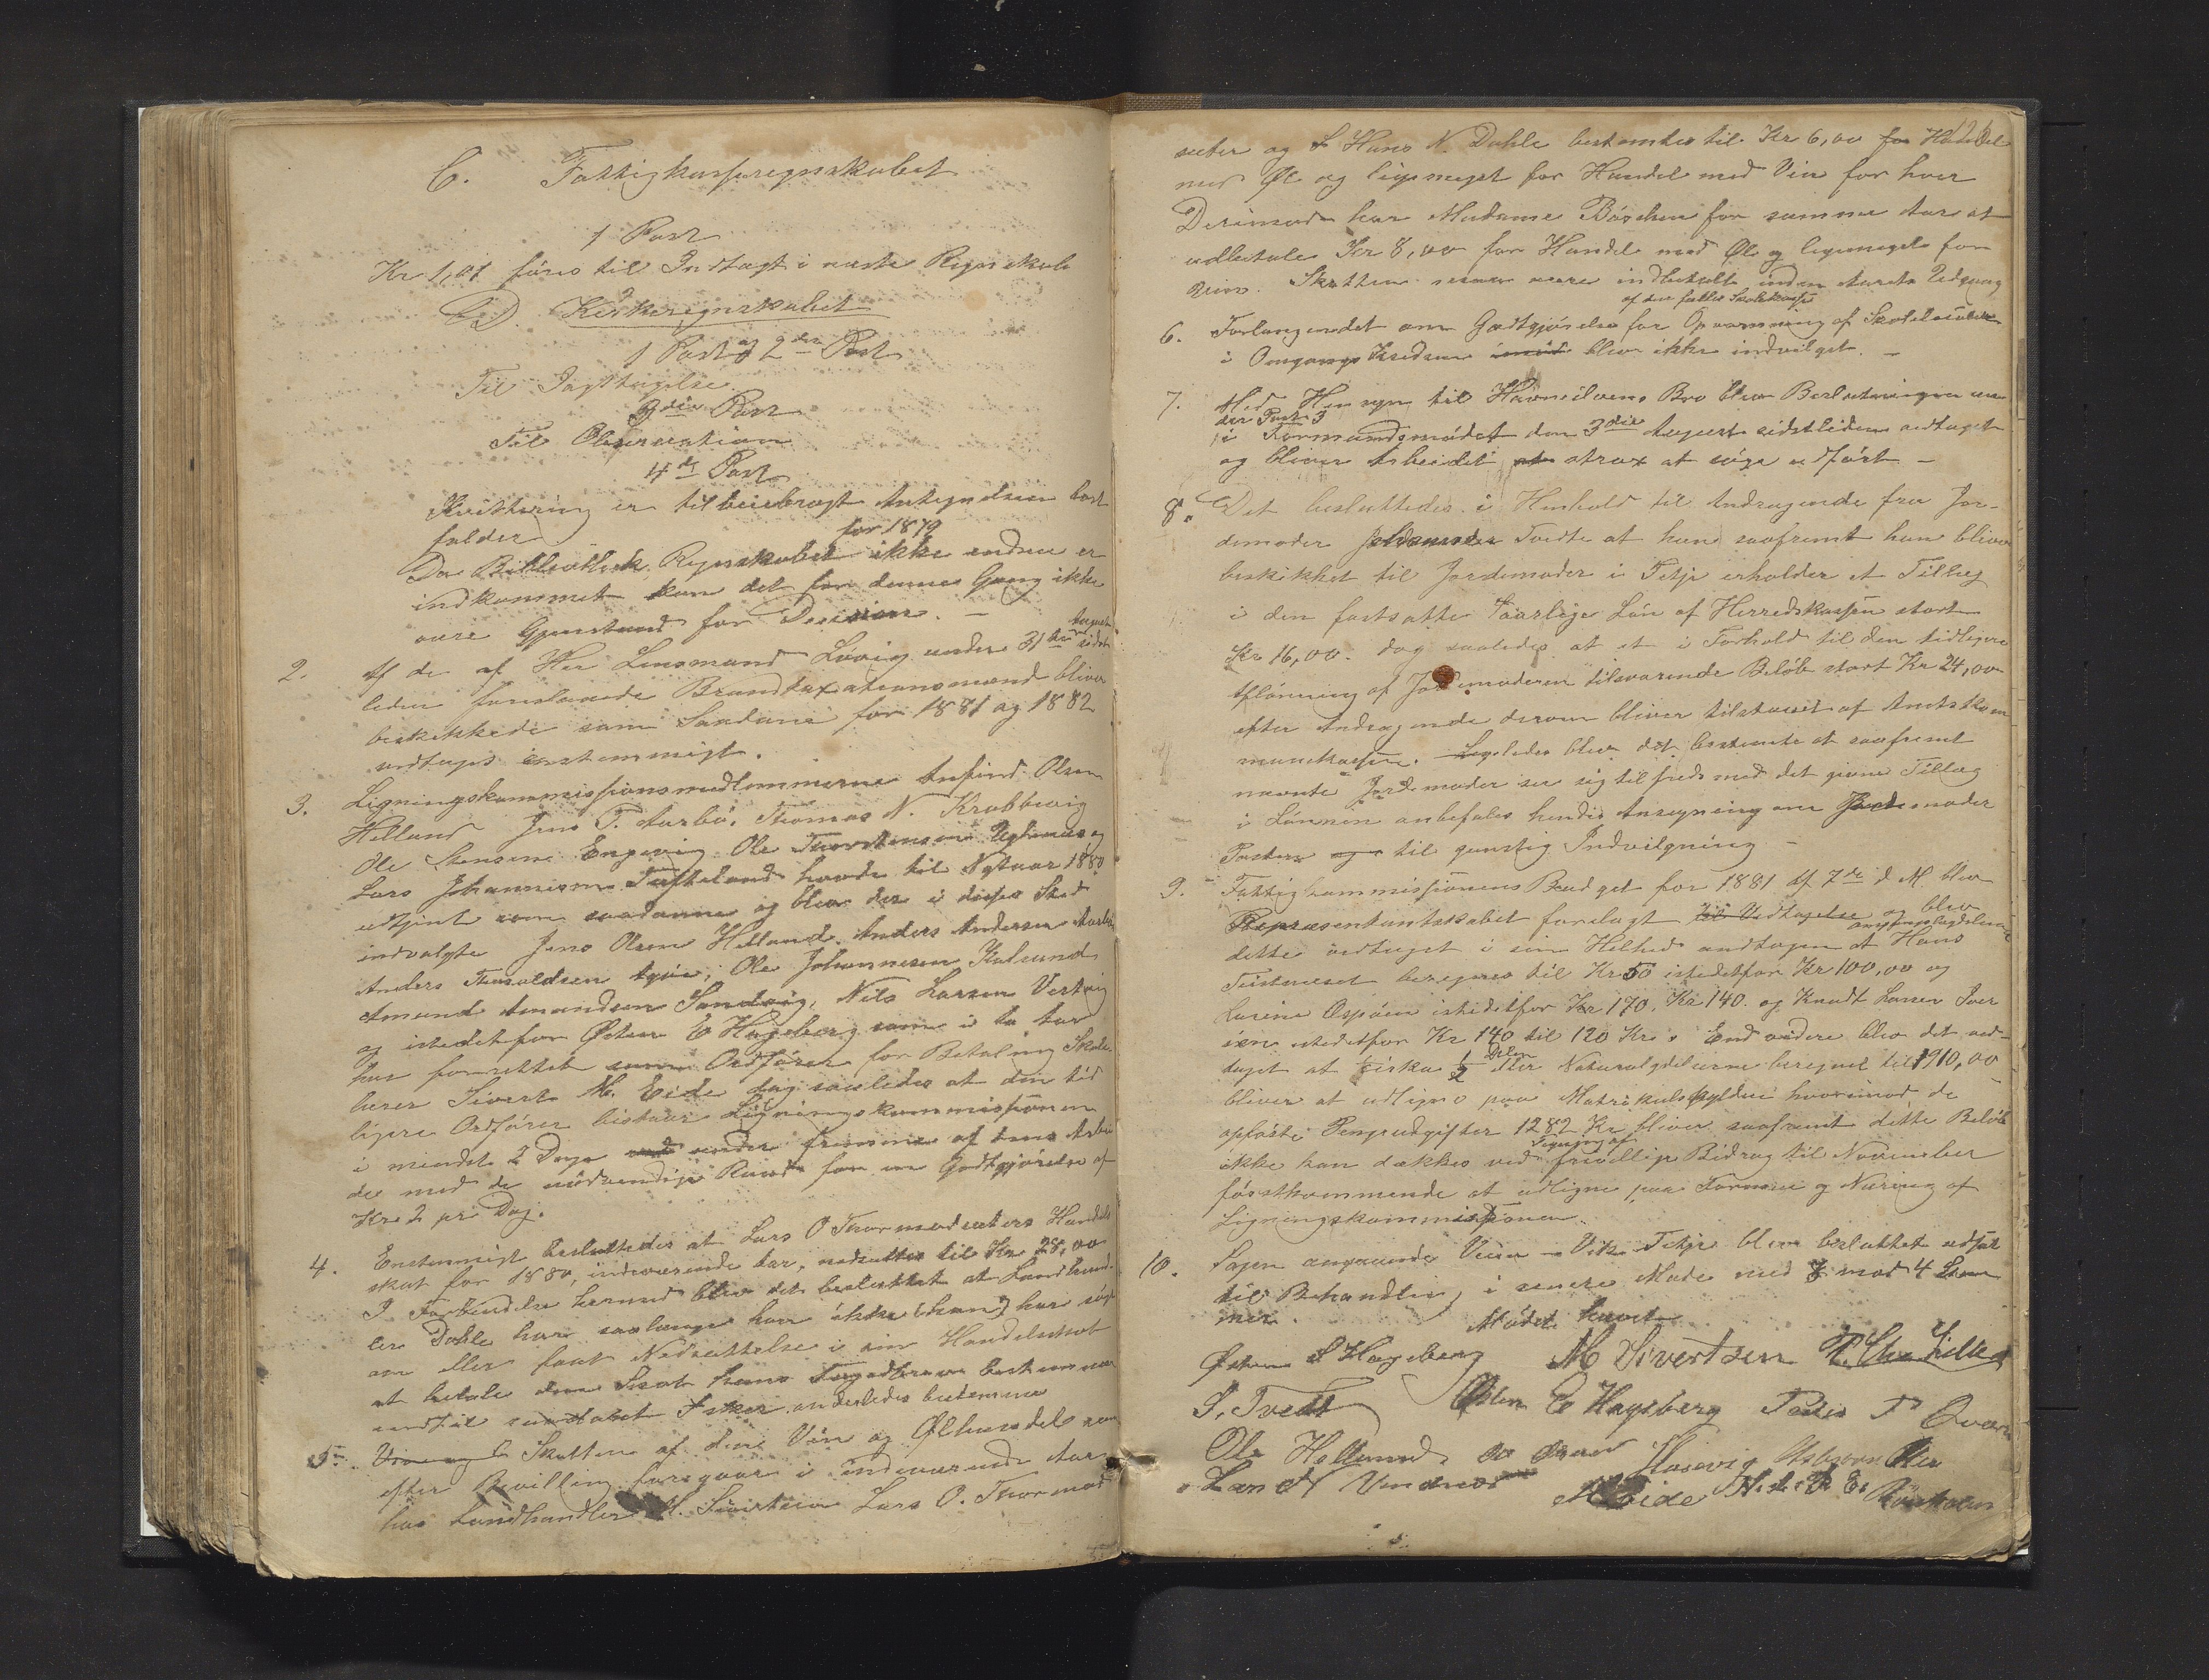 C. Fattigkasseregnskabet
1 Post
Kr 1,01 føres til Indtægt i næste Regnskab
D Kirkeregnskabet
1 Post og 2den Post
Til Iagttagelse
3die Post
Til Observation
4de Post
Kvittering er tilveiebragt Antegnelsen bort
falder
for 1879
Da Bibliothek Regnskabet ikke endnu er
indkommet kan det for denne Gang ikke
være Gjenstand for Decision. –
2. Af de af Her Lensmand Løvig under 31te August sidst
leden foreslaaede Brandtaxationsmænd bliver
beskikkede som Saadane for 1881 og 1882
vedtages enstemmigt.
3. Ligningskommissionsmedlemmerne Anfind Olsen
Helland Jens T. Aarbø, Thomas N. Krabbevig
Ole Stensen Engevig Ole Thorstensen og
Lars Johannesen Tufteland havde til Nytaar 1880
uttjent som saadanne og blev der i disses Sted
indvalgte Jens Olsen Helland, Anders Andersen Aarbø
Anders Thoraldsen Ole Johannesen Kalsund
Amund Amundsen Sandvig, Nils Larsen Vestvig
og istedetfor Østen E Hageberg som i to Aar
har forrettet som Ordfører for Betaling Skole-
lærer Sivert M. Eide dog saaledes at den tid
ligere Ordfører bistaar Ligningskommissionen
i mindst 2 Dage under fremme af dens Arbei
de med de nødvendige Raad for en Godtgjørelse af
Kr 2 pr Dag.
4. Enstemmigt besluttedes at Lars O Thormodsæters Handels
skat for 1880, indeværende Aar, nedsættes til Kr 28,00
I Forbindelse hermed blev det besluttet at Landhand-
ler Dahle har saalænge han ikke (han) har søgt
om eller faaet Nedsættelse i sin Handelsskat
at betale den Skat hans bestemmer
indtil anderledes bestemme
5. Skatten af den Vin og Ølhandel som
efter Bevilling foregaar i indeværende Aar
hos Landhandler M. Sivertsen Lars O. Thormod
sæter og S Hans N. Dahle bestemtes til Kr 6,00 for Handel
med Øl og ligemeget for Handel med Vin for hver
Derimod har Madame Børsheim for samme Aar at
udbetale Kr 8,00 for Handel med Øl og ligemeget for
Vin. Skatten maa være indbetalt inden Aarets Udgang
af den fælles Skolekasse
6. Forlangendet om Godtgjørelse for Opvarmning af Skolelocaler
i Omgangs Kredsen blev ikke indvilget. –
7. Med Hensyn til Havnelvens Bro blev Beslutningen un
der Post 3
i Formandsmødet den 3die August sidstleden vedtaget
og bliver Arbeidet strax at søge udført –
8. Det besluttedes i Henhold til Andragende fra Jor-
demoder Tvedte at hun saafremt hun bliver
beskikket til Jordemoder i Fitje erholder et Tillæg
i den fastsatte aarlige Løn af Herredskassen stort
Kr 16,00. dog saaledes at et i Forhold til den tidligere
Aflønning af Jordemoderen tilsvarende Beløb stort Kr 24,00
efter Andragende derom bliver tilstaaet af Amtskom
munekassen. Ligeledes blev det bestemte at saafremt
nævnte Jordemoder ser sig tilfreds med det givne Tillæg
i Lønnen anbefales hendes Ansøgning om Jordemoder
Posten til gunstig Indvilgning –
9. Fattigkommissionens Budget for 1881 af 7de d. M. blev
Repræsentantskabet forelagt til Vedtagelse og blev
dette vedtaget i sin Helhed undtagen at Hans
beregnes til Kr 50 istedetfor Kr 100,00 og
Larine Ospøen istedetfor Kr 170, Kr 140. og Knudt Larsen Iver
sen istedetfor Kr 140 til 120 Kr. Endvidere blev det ved-
taget at ciska 1/2 Delen eller Naturalydelserne beregnet til 1910,00
bliver at udligne paa Matrikulskylden hvorimod de
opførte Pengeudgifter 1282 Kr bliver saafremt dette Beløb
ikke kan dækkes ved Tegning af frivillige Bidrag til November
førstkommende at udligne paa Formue og Næring af
Ligningskommissionen.
10. Sagen angaaende Veien – Vik Fitje blev besluttet udsat
til Behandling i senere Møde med 7 mod 4 Stem
mer.
Mødet hævet
Østen S Hageberg M Sivertsen
S. Tvedt Østen E Hageberg
Ole Helland
Lars N Vindnes M Eide